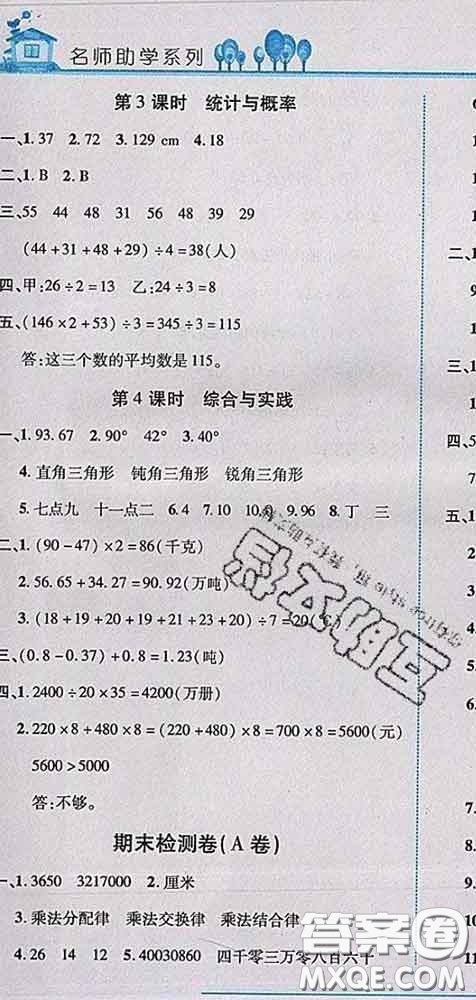 名师助学系列
第3课时 统计与概率
一、1.37 2.72 3.129 cm 4.18
二、1.B 2.B
三、55 44 48 31 56 48 39 29
(44+31+48+29)÷4=38(人)
四、甲:26÷2=13 乙:24÷3=8
五、(146×2+53)÷3=345÷3=115
答:这三个数的平均数是115。
第4课时 综合与实践
一、1.93.67 2.90° 42° 3.40°
4.直角三角形 钝角三角形 锐角三角形
5.七点九 十一点二 6.4 7.10 8.丁 三
二、1.(90-47)×2=86(千克)
2.56.65+34.27=90.92(万吨)
3.(18+19+20+19+21+23+20)÷7=20
三、(0.8-0.37)+0.8=1.23(吨)
四、1.2400÷20×35=4200(万册)
2.220×8+480×8=(220+480)×8=700×8=5600(元)
5600>5000
答:不够。
期末检测卷(A卷)
一、1.3650 3217000 2.厘米
3.乘法分配律 乘法交换律 乘法结合律
4.26 14 12 5.40030860 四千零三万零八百六十
答案圈
MXQE.COM